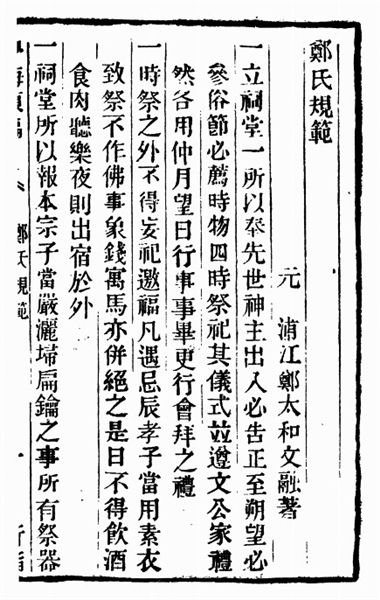 鄭氏規範
元 浦江鄭太和文融著
一立祠堂一所以奉先世神主出入必告正至朔望必
參俗節必薦時物四時祭祀其儀式並遵文公家禮
然各用仲月望日行事事畢更行會拜之禮
一時祭之外不得妄祀邀福凡遇忌辰孝子當用素衣
致祭不作佛事象錢寓馬亦併絕之是日不得飲酒
食肉聽樂夜則出宿於外
一祠堂所以報本宗子當嚴灑埽扃鑰之事所有祭器
鄭氏規範 一